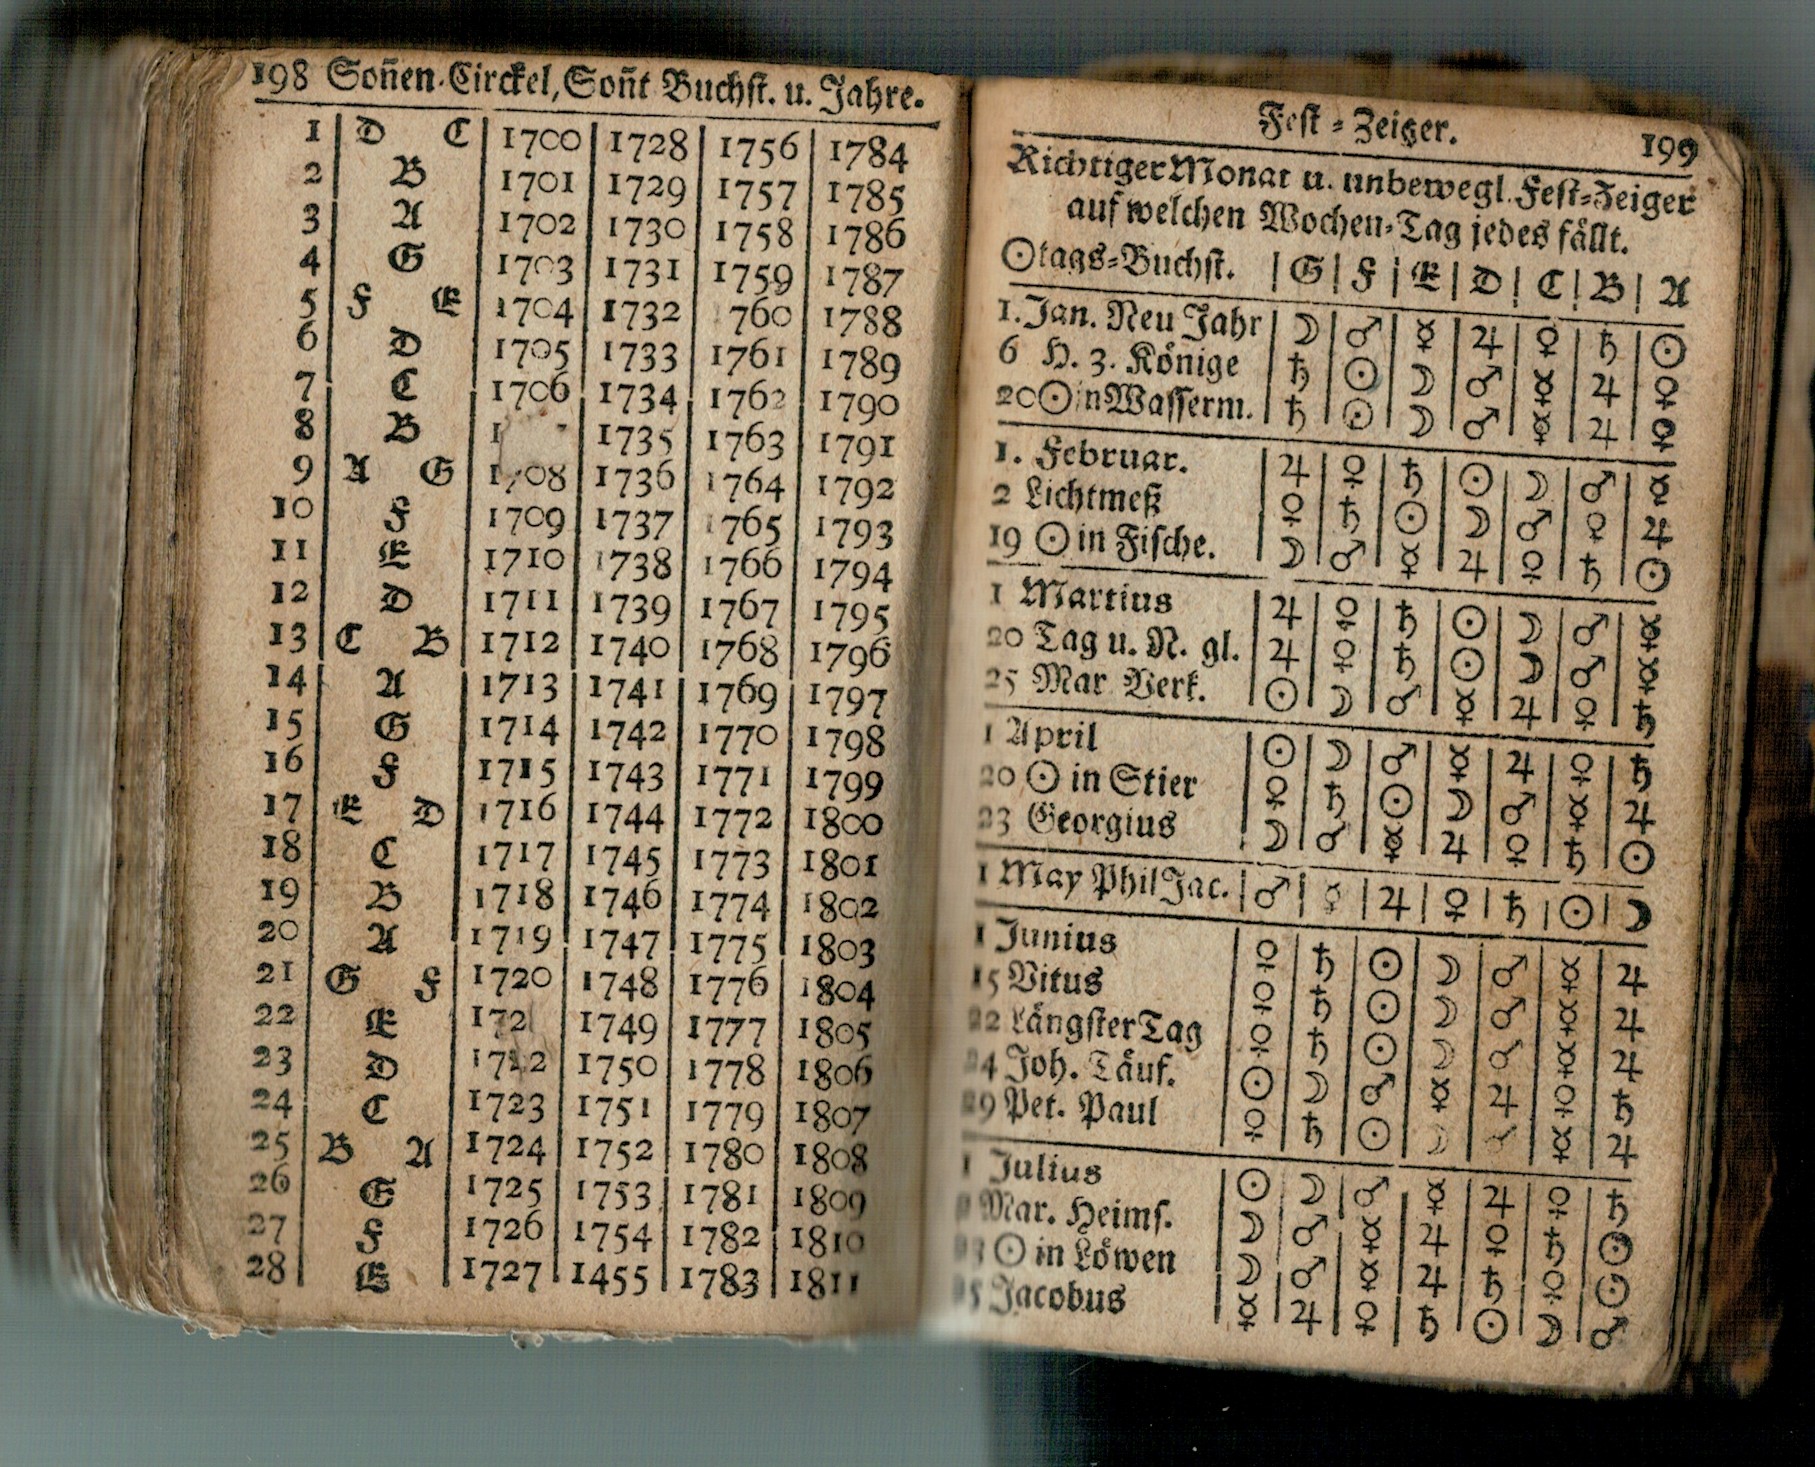 198 Soñen-Circkel, Soñt Buchst. u. Jahre.
1 D C 1700 1728 1756 1784
2 B 1701 1729 1757 1785
3 A 1702 1730 1758 1786
4 G 1703 1731 1759 1787
5 F E 1704 1732 760 1788
6 D 1705 1733 1761 1789
7 C 1706 1734 1762 1790
8 B 1735 1763 1791
9 A G 1708 1736 1764 1792
10 F 1709 1737 1765 1793
11 E 1710 1738 1766 1794
12 D 1711 1739 1767 1795
13 C B 1712 1740 1768 1796
14 A 1713 1741 1769 1797
15 G 1714 1742 1770 1798
16 F 1715 1743 1771 1799
17 E D 1716 1744 1772 1800
18 C 1717 1745 1773 1801
19 B 1718 1746 1774 1802
20 A 1719 1747 1775 1803
21 G F 1720 1748 1776 1804
22 E 1721 1749 1777 1805
23 D 1722 1750 1778 1806
24 C 1723 1751 1779 1807
25 B A 1724 1752 1780 1808
26 G 1725 1753 1781 1809
27 F 1726 1754 1782 1810
28 E 1727 1455 1783 1811
Fest-Zeiger. 199
Richtiger Monat u. unbewegl. Fest-Zeiger
auf welchen Wochen-Tag jedes fällt.
☉tags-Buchst. G F E D C B A
1. Jan. Neu Jahr ☽ ♂ ☿ ♃ ♀ ♄ ☉
6 H. 3. Könige ♄ ☉ ☽ ♂ ☿ ♃ ♀
20 ☉ in Wasserm. ♄ ☉ ☽ ♂ ☿ ♃ ♀
1. Februar. ♃ ♀ ♄ ☉ ☽ ♂ ☿
2 Lichtmeß ♀ ♄ ☉ ☽ ♂ ♀ ♃
19 ☉ in Fische. ☽ ♂ ☿ ♃ ♀ ♄ ☉
1 Martius ♃ ♀ ♄ ☉ ☽ ♂ ☿
20 Tag u. N. gl. ♃ ♀ ♄ ☉ ☽ ♂ ☿
25 Mar Verk. ☉ ☽ ♂ ☿ ♃ ♀ ♄
1 April ☉ ☽ ♂ ☿ ♃ ♀ ♄
20 ☉ in Stier ♀ ♄ ☉ ☽ ♂ ☿ ♃
23 Georgius ☽ ♂ ☿ ♃ ♀ ♄ ☉
1 May Phil Jac. ♂ ☿ ♃ ♀ ♄ ☉ ☽
1 Junius ♀ ♄ ☉ ☽ ♂ ☿ ♃
15 Vitus ♀ ♄ ☉ ☽ ♂ ☿ ♃
22 Längster Tag ♀ ♄ ☉ ☽ ♂ ☿ ♃
24 Joh. Täuf. ☉ ☽ ♂ ☿ ♃ ♀ ♄
29 Pet. Paul ♀ ♄ ☉ ☽ ♂ ☿ ♃
1 Julius ☉ ☽ ♂ ☿ ♃ ♀ ♄
Mar. Heims. ☽ ♂ ☿ ♃ ♀ ♄ ☉
☉ in Löwen ☽ ♂ ☿ ♃ ♄ ♀ ☉
Jacobus ☿ ♃ ♀ ♄ ☉ ☽ ♂